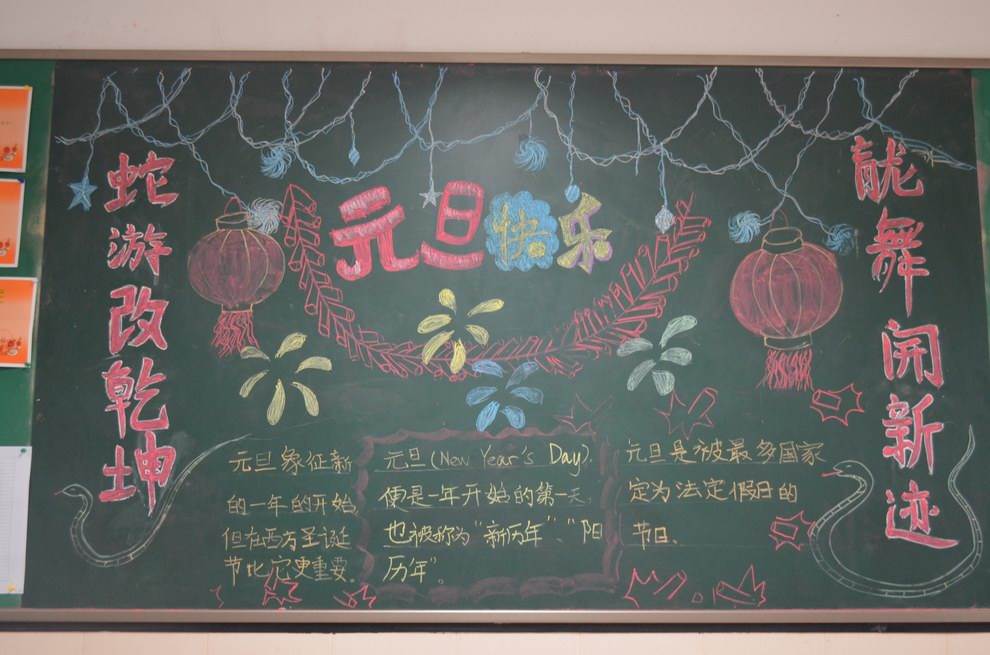 元旦快乐
龙舞开新迹
蛇游改乾坤
元旦象征新
的一年的开始,
但在西方圣诞
节比它更重要。
元旦(New Year's Day),
便是一年开始的第一天,
也被称为“新历年”、“阳
历年”。
元旦是被最多国家
定为法定假日的
节日。